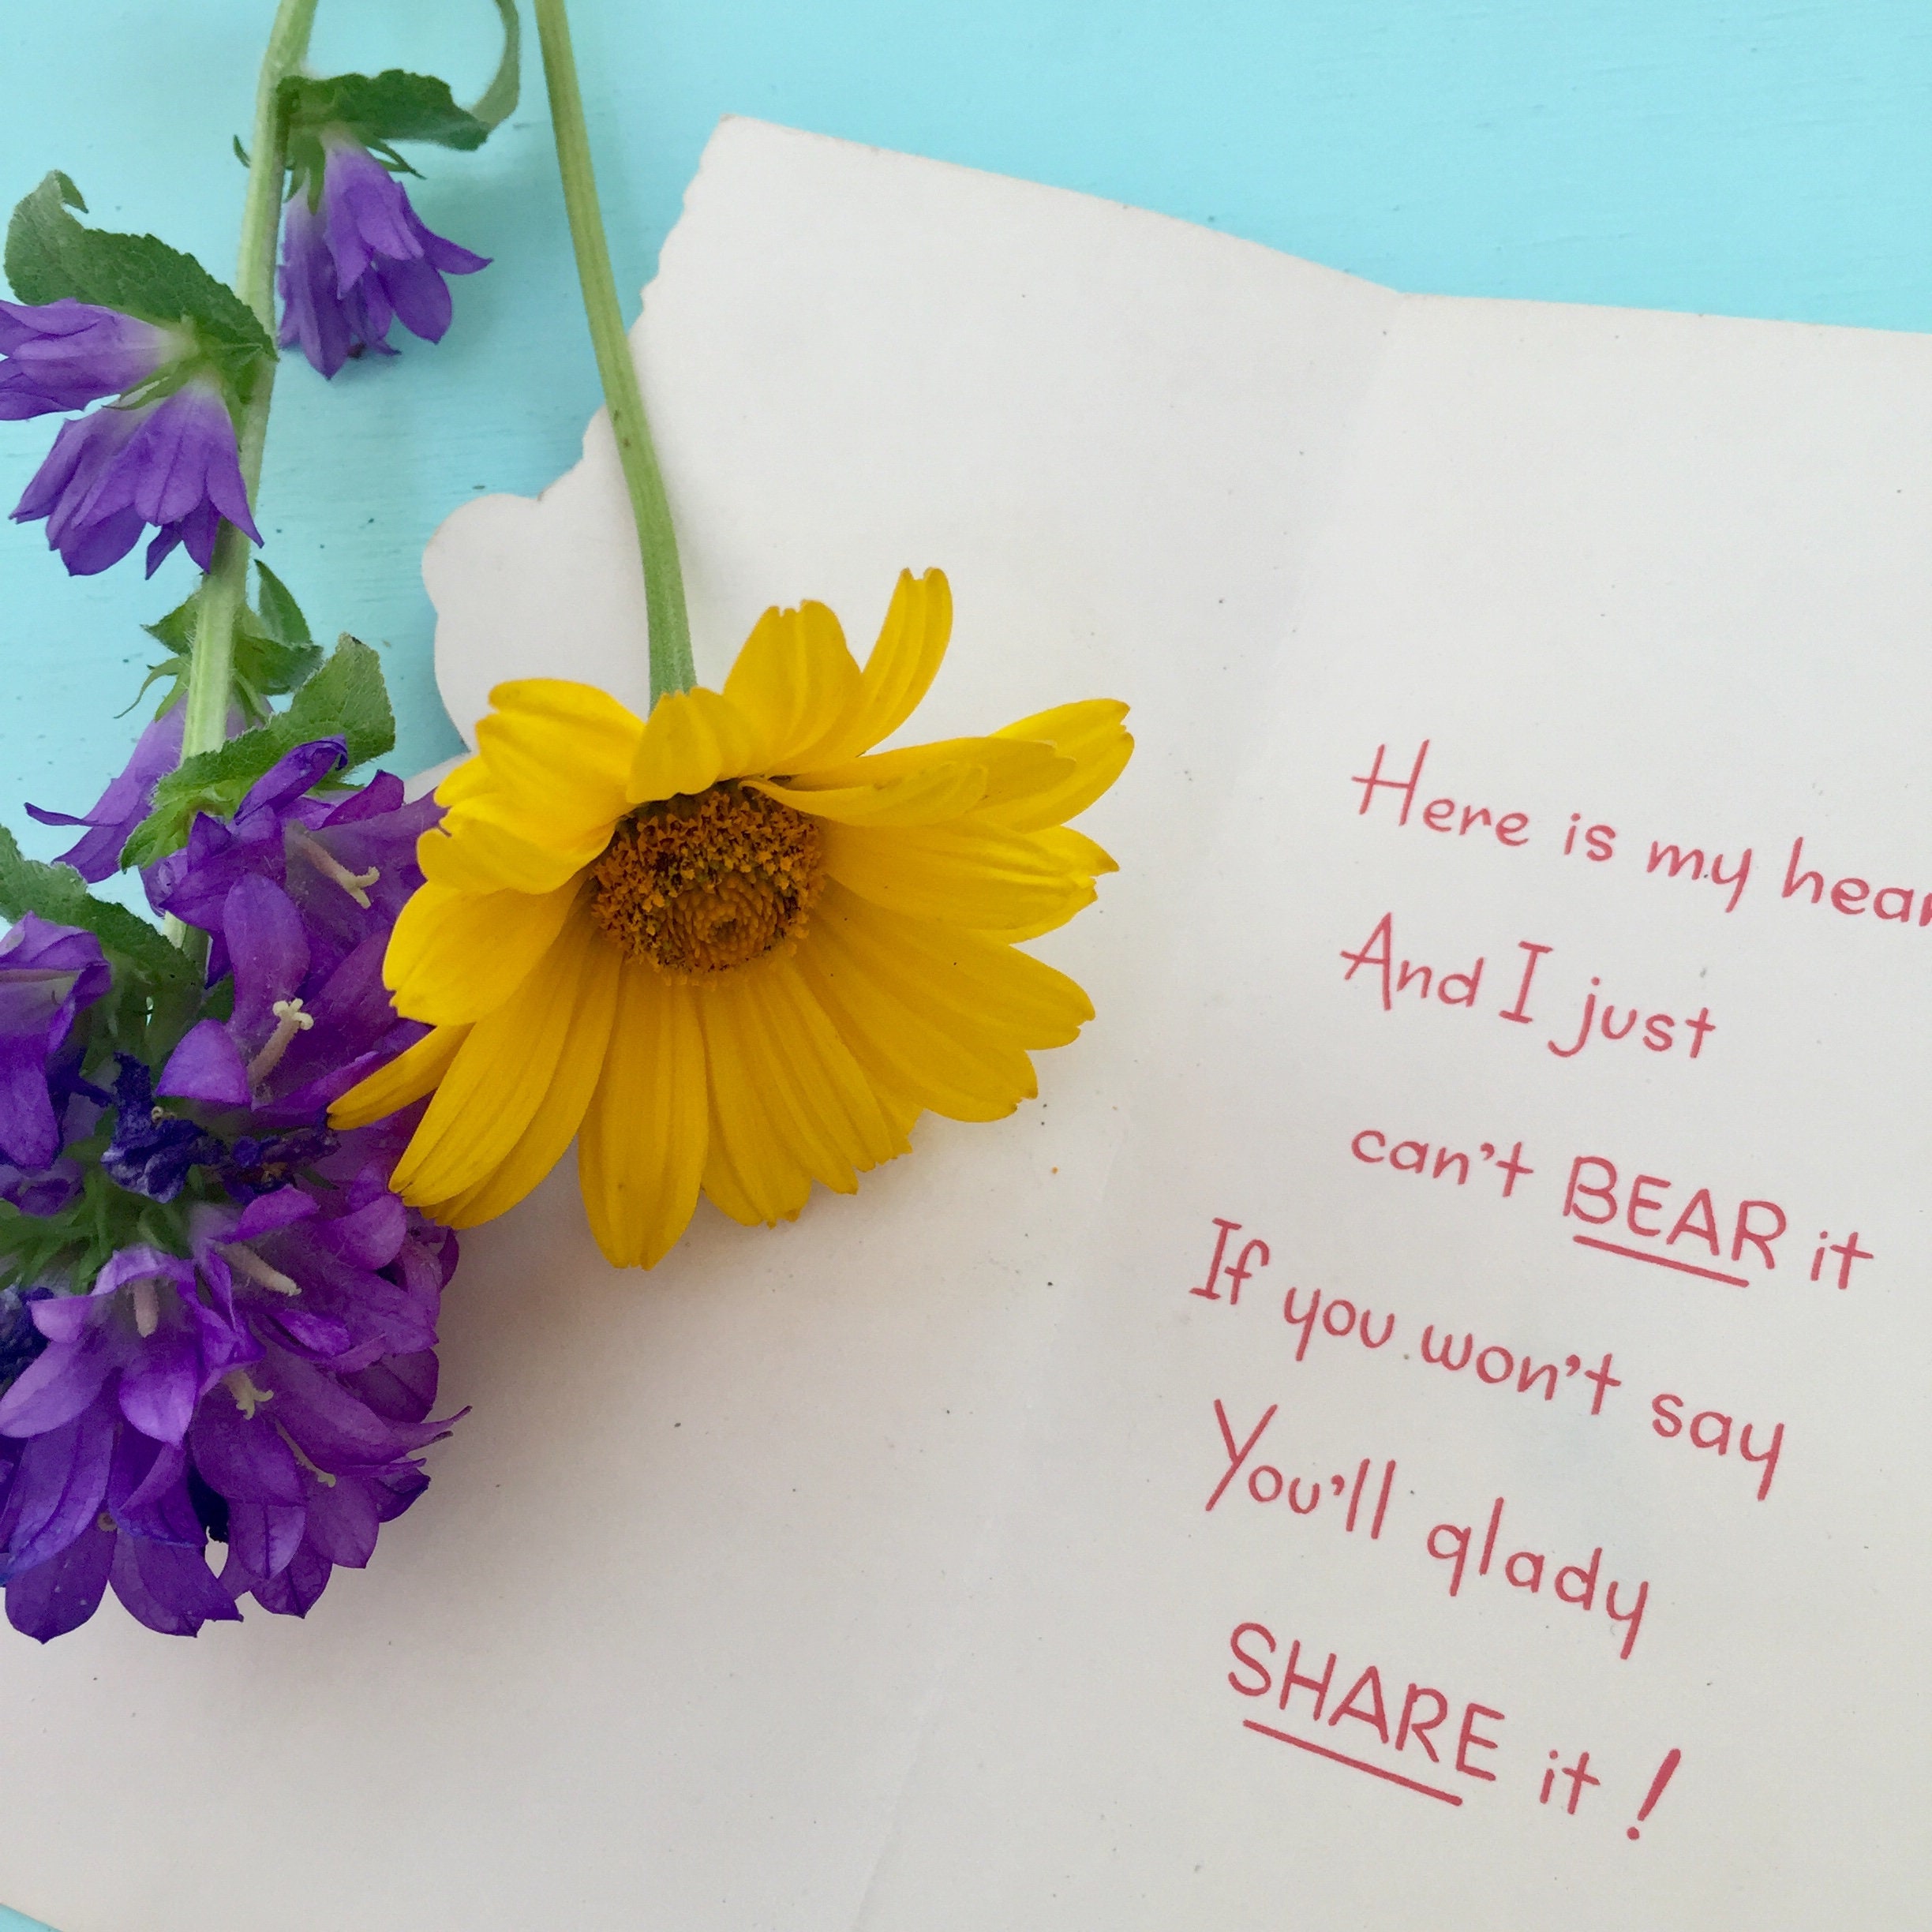 Here is my hear
And I just
can't BEAR it
If you won't say
You'll glady
SHARE it!